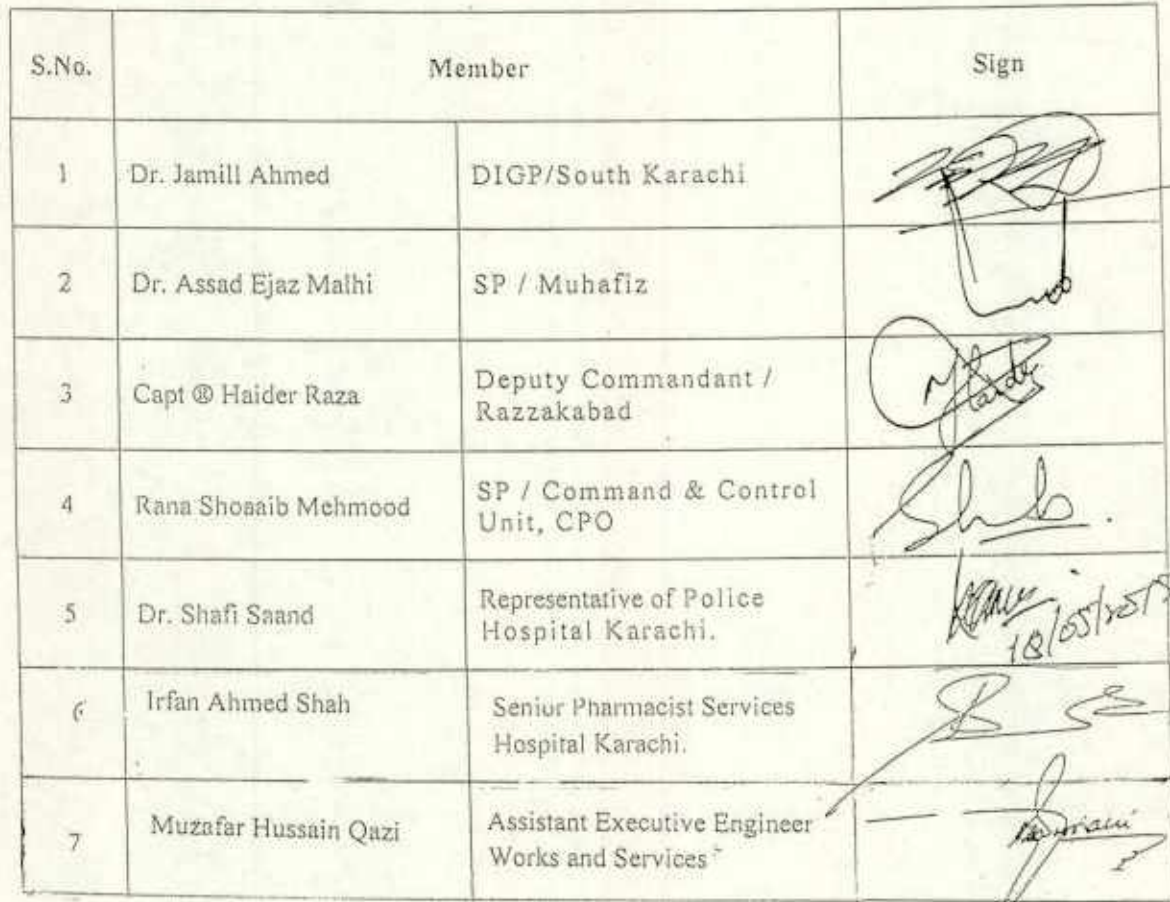 S.No. Member Sign
1 Dr. Jamill Ahmed DIGP/South Karachi
2 Dr. Assad Ejaz Malhi SP / Muhafiz
3 Capt ® Haider Raza Deputy Commandant /
Razzakabad
4 Rana Shoaaib Mehmood SP / Command & Control
Unit, CPO
5 Dr. Shafi Saand Representative of Police
Hospital Karachi.
6 Irfan Ahmed Shah Senior Pharmacist Services
Hospital Karachi.
7 Muzafar Hussain Qazi Assistant Executive Engineer
Works and Services